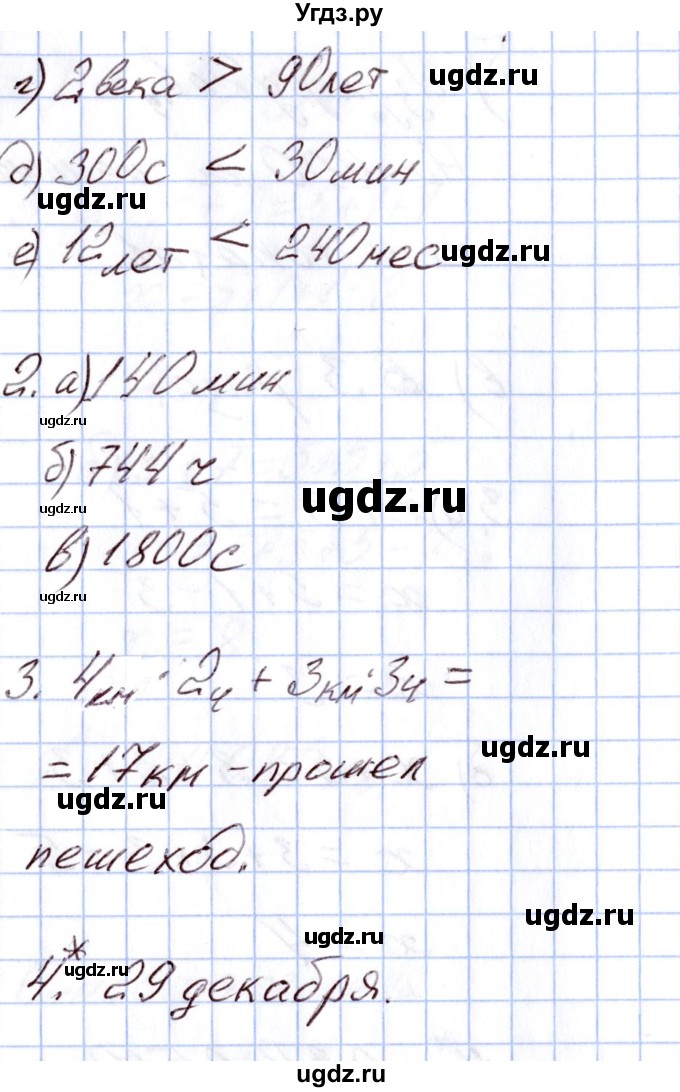 Угдз.ру
г) 2 века > 90 лет ugdz.ru
д) 300 с < 30 мин
ugdz.ru
е) 12 лет < 240 мес ugdz.ru
2. а) 140 мин
ugdz.ru
б) 744 ч
ugdz.ru
ugdz.ru
в) 1800 с
ugdz.ru
3. 4 км · 2 ч + 3 км · 3 ч =
ugdz.ru
= 17 км - прошел
ugdz.ru
пешеход.
ugdz.ru
ugdz.ru
4.* 29 декабря.
ugdz.ru
ugdz.ru